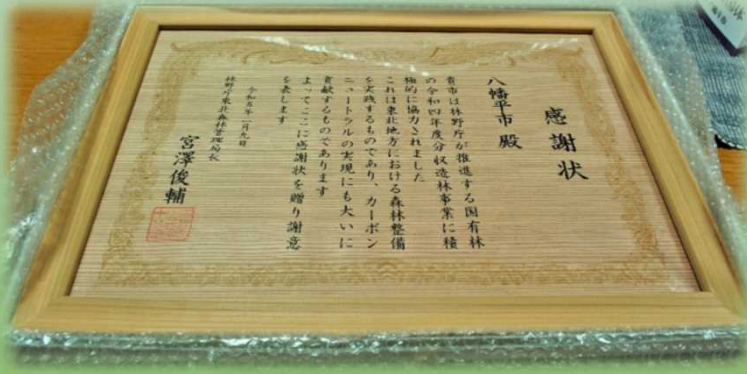 感謝状
八幡平市 殿
貴市は林野庁が推進する国有林
の令和四年度分収造林事業に積
極的に協力されました
これは東北地方における森林整備
を実践するものであり、カーボン
ニュートラルの実現にも大いに
貢献するものであります
よってここに感謝状を贈り謝意
を表します
令和五年一月九日
林野庁東北森林管理局長
宮澤俊輔